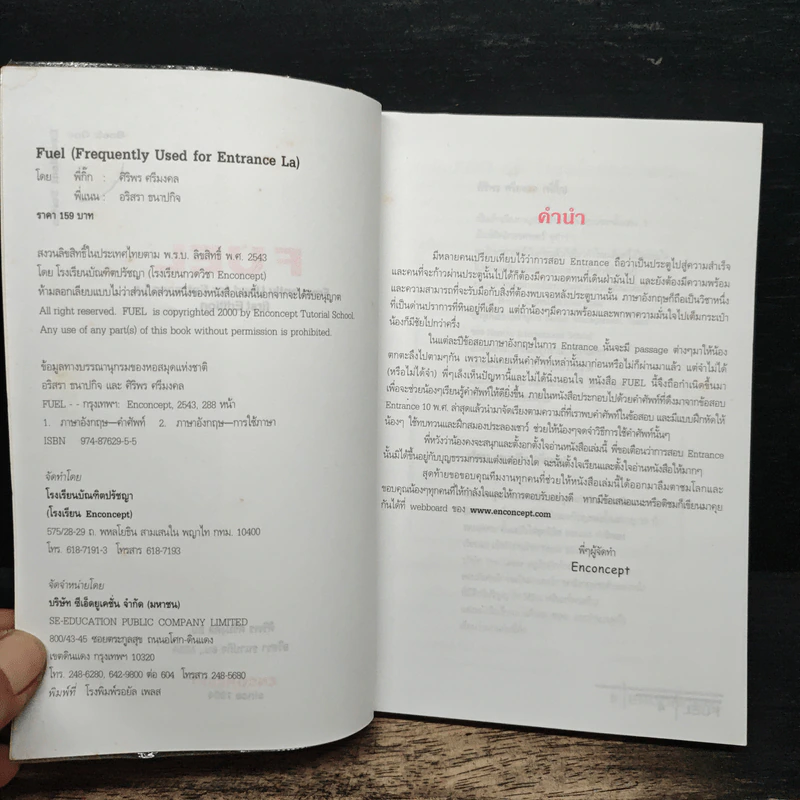 Fuel (Frequently Used for Entrance La)
โดย พี่กิ๊ก : ศิริพร ศรีมงคล
พี่แนน : อริสรา ธนาปกิจ
ราคา 159 บาท
สงวนลิขสิทธิ์ในประเทศไทยตาม พ.ร.บ. ลิขสิทธิ์ พ.ศ. 2543
โดย โรงเรียนบัณฑิตปรัชญา (โรงเรียนกวดวิชา Enconcept)
ห้ามลอกเลียนแบบไม่ว่าส่วนใดส่วนหนึ่งของหนังสือเล่มนี้นอกจากจะได้รับอนุญาต
All right reserved. FUEL is copyrighted 2000 by Enconcept Tutorial School.
Any use of any part(s) of this book without permission is prohibited.
ข้อมูลทางบรรณานุกรมของหอสมุดแห่งชาติ
อริสรา ธนาปกิจ และ ศิริพร ศรีมงคล
FUEL - - กรุงเทพฯ: Enconcept, 2543, 288 หน้า
1. ภาษาอังกฤษ—คำศัพท์ 2. ภาษาอังกฤษ—การใช้ภาษา
ISBN 974-87629-5-5
จัดทำโดย
โรงเรียนบัณฑิตปรัชญา
(โรงเรียน Enconcept)
575/28-29 ถ. พหลโยธิน สามเสนใน พญาไท กทม. 10400
โทร. 618-7191-3 โทรสาร 618-7193
จัดจำหน่ายโดย
บริษัท ซีเอ็ดยูเคชั่น จำกัด (มหาชน)
SE-EDUCATION PUBLIC COMPANY LIMITED
800/43-45 ซอยตระกูลสุข ถนนอโศก-ดินแดง
เขตดินแดง กรุงเทพฯ 10320
โทร. 248-6280, 642-9800 ต่อ 604 โทรสาร 248-5680
พิมพ์ที่ โรงพิมพ์รอยัล เพลส
คำนำ
มีหลายคนเปรียบเทียบไว้ว่าการสอบ Entrance ถือว่าเป็นประตูไปสู่ความสำเร็จ
และคนที่จะก้าวผ่านประตูนั้นไปได้ก็ต้องมีความอดทนที่เดินฝ่ามันไป และยังต้องมีความพร้อม
และความสามารถที่จะรับมือกับสิ่งที่ต้องพบเจอหลังประตูบานนั้น ภาษาอังกฤษก็ถือเป็นวิชาหนึ่ง
ที่เป็นด่านปราการที่หินอยู่ทีเดียว แต่ถ้าน้องๆมีความพร้อมและพกพาความมั่นใจไปเต็มกระเป๋า
น้องก็มีชัยไปกว่าครึ่ง
ในแต่ละปีข้อสอบภาษาอังกฤษในการ Entrance นั้นจะมี passage ต่างๆมาให้น้อง
ตกตะลึงไปตามๆกัน เพราะไม่เคยเห็นคำศัพท์เหล่านั้นมาก่อนหรือไม่ก็ผ่านมาแล้ว แต่จำไม่ได้
(หรือไม่ได้จำ) พี่ๆเล็งเห็นปัญหานี้และไม่ได้นิ่งนอนใจ หนังสือ FUEL นี้จึงถือกำเนิดขึ้นมา
เพื่อจะช่วยน้องๆเรียนรู้คำศัพท์ให้ดียิ่งขึ้น ภายในหนังสือประกอบไปด้วยคำศัพท์ที่ดึงมาจากข้อสอบ
Entrance 10 พ.ศ. ล่าสุดแล้วนำมาจัดเรียงตามความถี่ที่เราพบคำศัพท์ในข้อสอบ และมีแบบฝึกหัดให้
น้องๆ ใช้ทบทวนและฝึกสมองประลองเชาว์ ช่วยให้น้องๆจดจำวิธีการใช้คำศัพท์นั้นๆ
พี่หวังว่าน้องคงจะสนุกและตั้งอกตั้งใจอ่านหนังสือเล่มนี้ พี่ขอเตือนว่าการสอบ Entrance
นั้นมิได้ขึ้นอยู่กับบุญธรรมกรรมแต่งแต่อย่างใด ฉะนั้นตั้งใจเรียนและตั้งใจอ่านหนังสือให้มากๆ
สุดท้ายขอขอบคุณทีมงานทุกคนที่ช่วยให้หนังสือเล่มนี้ได้ออกมาลืมตาชมโลกและ
ขอบคุณน้องๆทุกคนที่ให้กำลังใจและให้การตอบรับอย่างดี หากมีข้อเสนอแนะหรือติชมก็เขียนมาคุย
กันได้ที่ webboard ของ www.enconcept.com
พี่ๆผู้จัดทำ
Enconcept